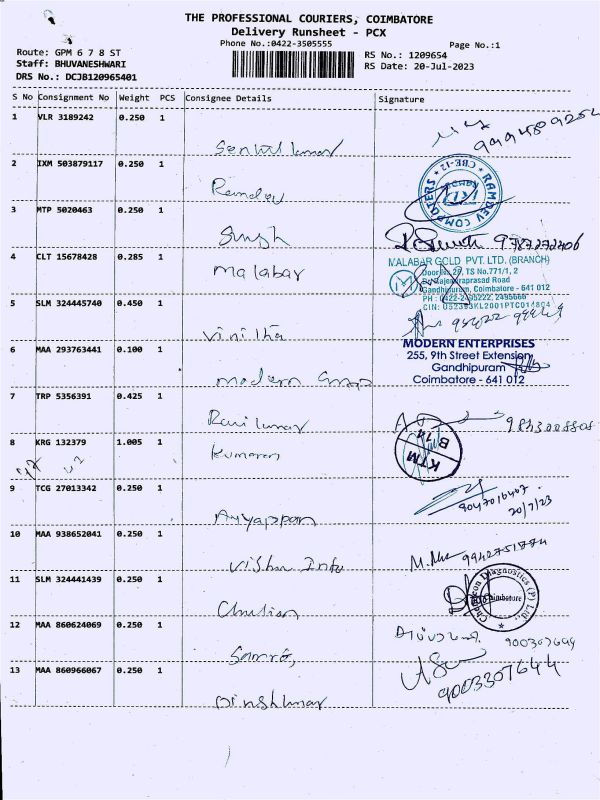 THE PROFESSIONAL COURIERS, COIMBATORE
Delivery Runsheet - PCX
Phone No.:0422-3505555
Page No.:1
Route: GPM 6 7 8 ST
Staff: BHUVANESHWARI
DRS No.: DCJB120965401
RS No.: 1209654
RS Date: 20-Jul-2023
S No Consignment No Weight PCS Consignee Details Signature
1 VLR 3189242 0.250 1
Senthil kumar
2 IXM 503879117 0.250 1
Ramdev
RAMDEV COMPUTERS * CBE-12 *
3 MTP 5020463 0.250 1
Singh 9787272706
4 CLT 15678428 0.285 1
malabar
MALABAR GOLD PVT. LTD. (BRANCH)
Door No. 26, TS No.771/1, 2
Dr. Rajendraprasad Road
Gandhipuram, Coimbatore - 641 012
PH : 0422-2495222, 2495666
5 SLM 324445740 0.450 1
Vinitha
6 MAA 293763441 0.100 1
MODERN ENTERPRISES
255, 9th Street Extension
Gandhipuram
Coimbatore - 641 012
modern
7 TRP 5356391 0.425 1
Ravi kumar
8 KRG 132379 1.005 1
Kumaran
KTM
B 14
9 TCG 27013342 0.250 1
20/7/23
Ayyappan
10 MAA 938652041 0.250 1
Vishu Info
9942751774
11 SLM 324441439 0.250 1
Diagnostics (P) Ltd.
Coimbatore
12 MAA 860624069 0.250 1
13 MAA 860966067 0.250 1
9003307644